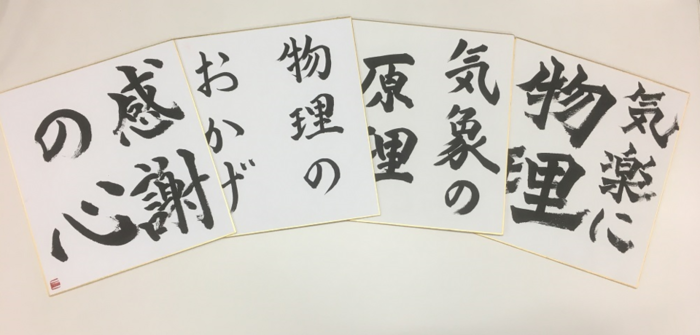 気楽に
物理
気象の
原理
物理の
おかげ
感謝
の心